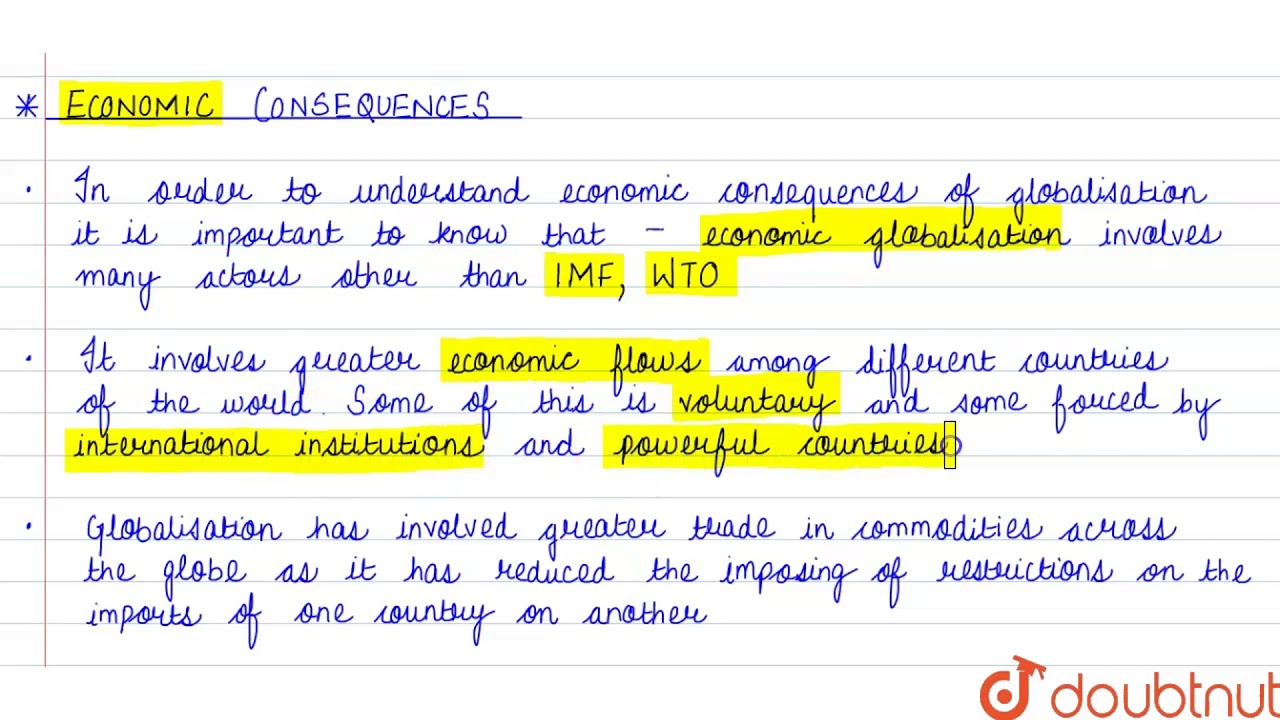 * ECONOMIC CONSEQUENCES
· In order to understand economic consequences of globalisation
it is important to know that - economic globalisation involves
many actors other than IMF, WTO
· It involves greater economic flows among different countries
of the world. Some of this is voluntary and some forced by
international institutions and powerful countries
· Globalisation has involved greater trade in commodities across
the globe as it has reduced the imposing of restrictions on the
imports of one country on another
doubtnut